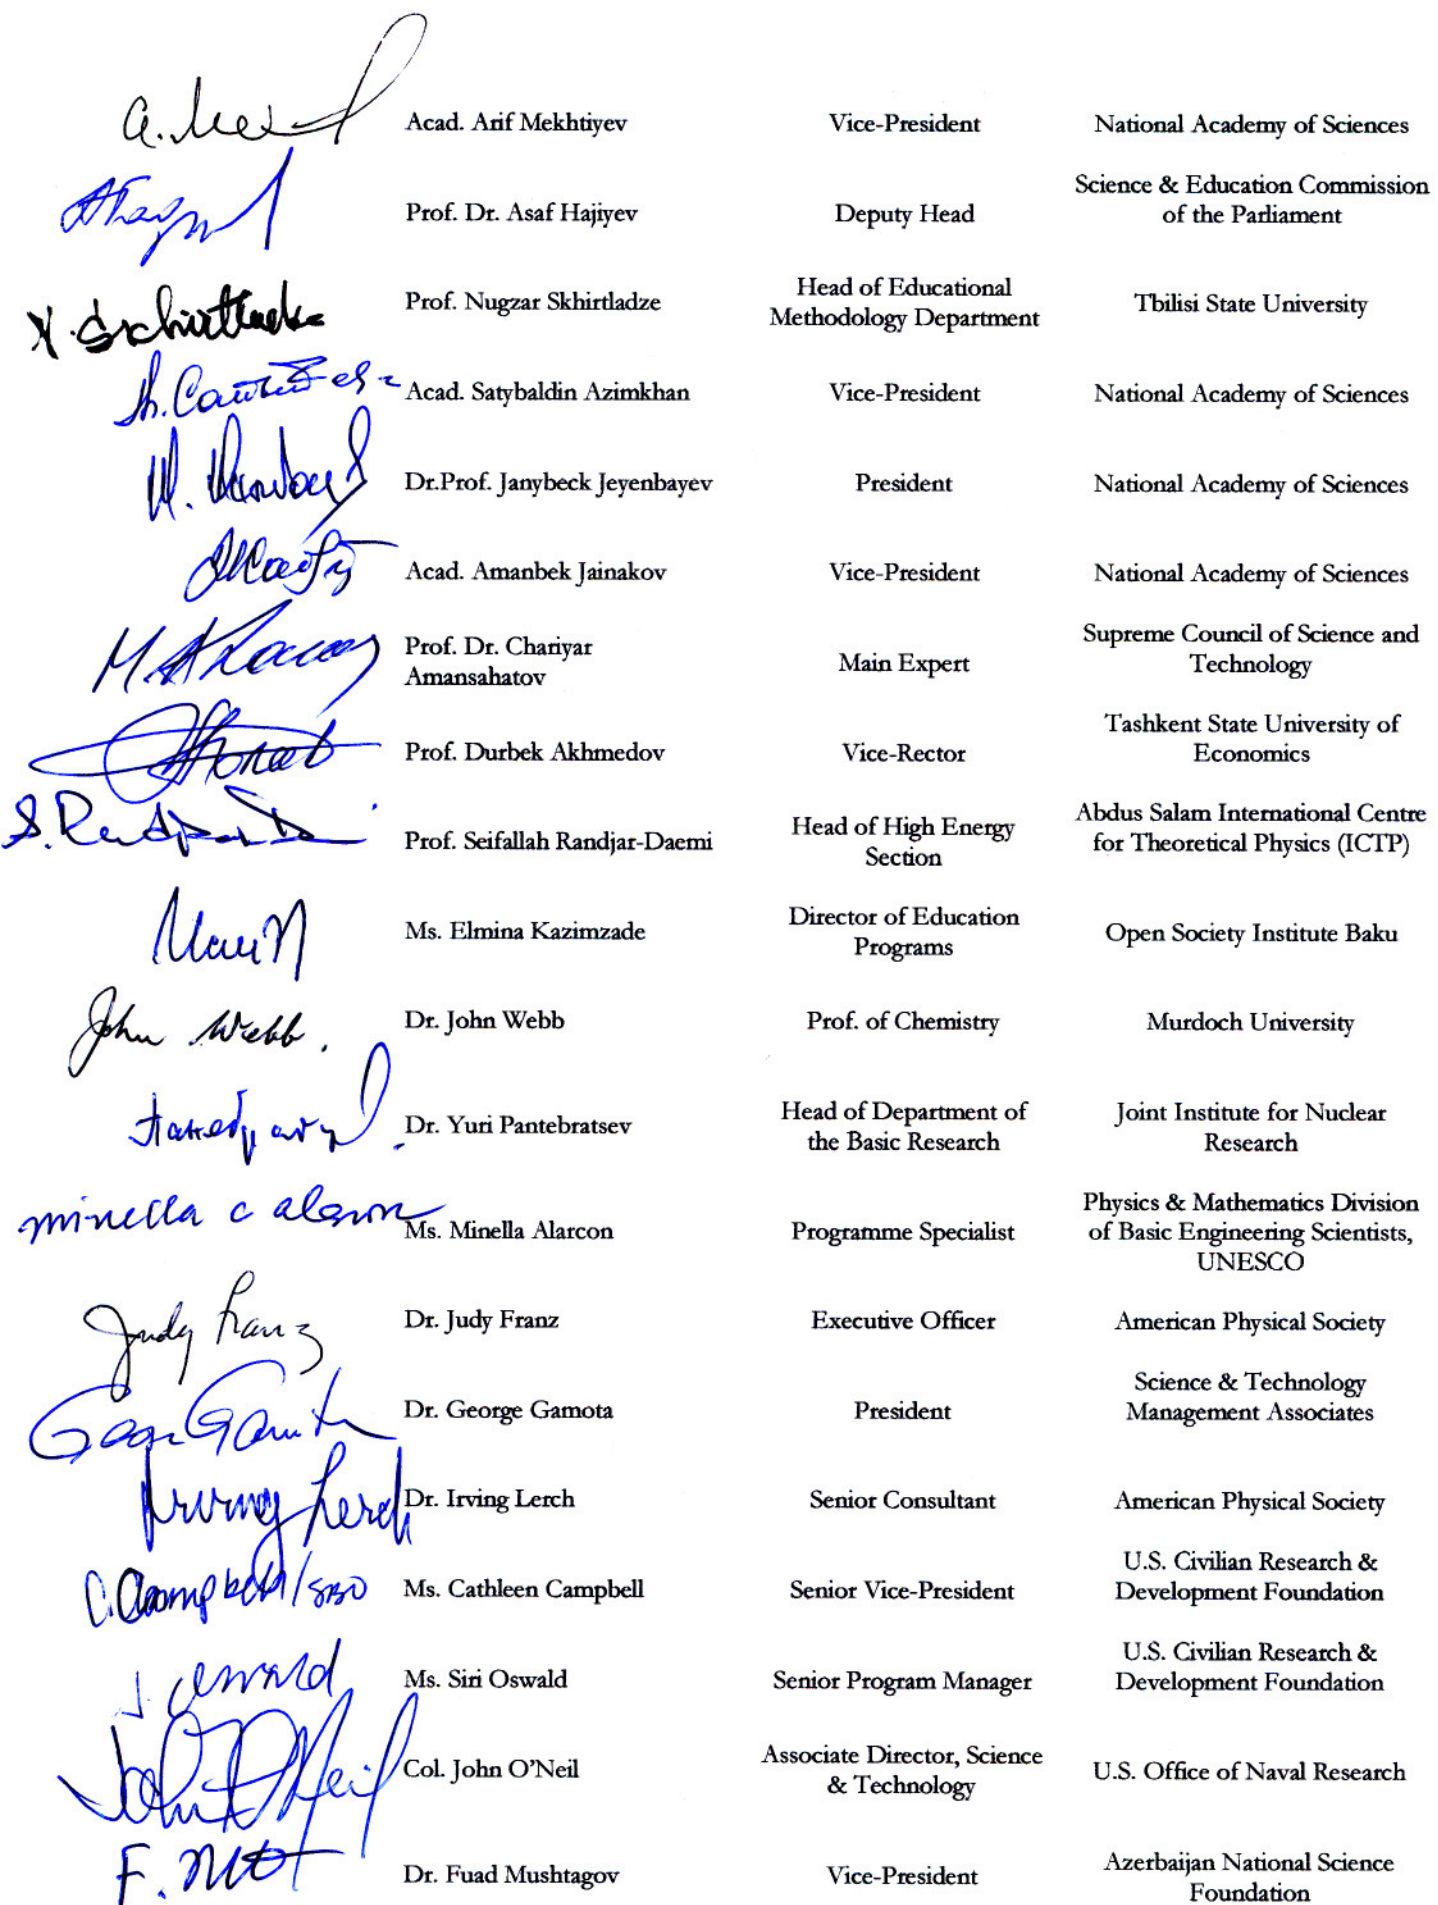 Acad. Arif Mekhtiyev Vice-President National Academy of Sciences
Prof. Dr. Asaf Hajiyev Deputy Head Science & Education Commission
of the Parliament
N. Schirtladze Prof. Nugzar Skhirtladze Head of Educational
Methodology Department Tbilisi State University
Acad. Satybaldin Azimkhan Vice-President National Academy of Sciences
Dr.Prof. Janybeck Jeyenbayev President National Academy of Sciences
Acad. Amanbek Jainakov Vice-President National Academy of Sciences
Prof. Dr. Chariyar
Amansahatov Main Expert Supreme Council of Science and
Technology
Prof. Durbek Akhmedov Vice-Rector Tashkent State University of
Economics
Prof. Seifallah Randjar-Daemi Head of High Energy
Section Abdus Salam International Centre
for Theoretical Physics (ICTP)
Ms. Elmina Kazimzade Director of Education
Programs Open Society Institute Baku
John Webb. Dr. John Webb Prof. of Chemistry Murdoch University
Dr. Yuri Pantebratsev Head of Department of
the Basic Research Joint Institute for Nuclear
Research
minella c alarcon Ms. Minella Alarcon Programme Specialist Physics & Mathematics Division
of Basic Engineering Scientists,
UNESCO
Judy Franz Dr. Judy Franz Executive Officer American Physical Society
Dr. George Gamota President Science & Technology
Management Associates
Irving Lerch Dr. Irving Lerch Senior Consultant American Physical Society
C. Campbell/SBO Ms. Cathleen Campbell Senior Vice-President U.S. Civilian Research &
Development Foundation
Ms. Siri Oswald Senior Program Manager U.S. Civilian Research &
Development Foundation
John O'Neil Col. John O'Neil Associate Director, Science
& Technology U.S. Office of Naval Research
Dr. Fuad Mushtagov Vice-President Azerbaijan National Science
Foundation